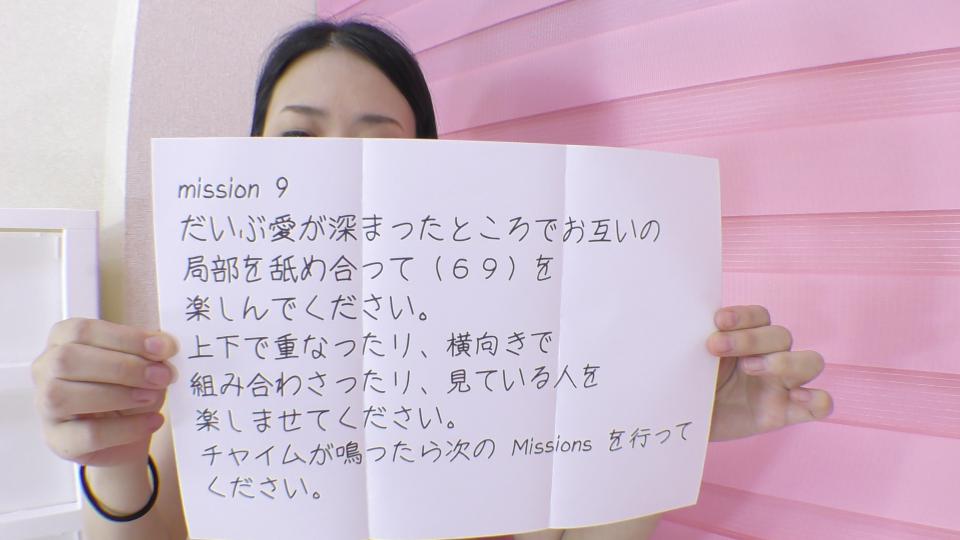 mission 9
だいぶ愛が深まったところでお互いの
局部を舐め合って（６９）を
楽しんでください。
上下で重なったり、横向きで
組み合わさったり、見ている人を
楽しませてください。
チャイムが鳴ったら次の Missions を行って
ください。